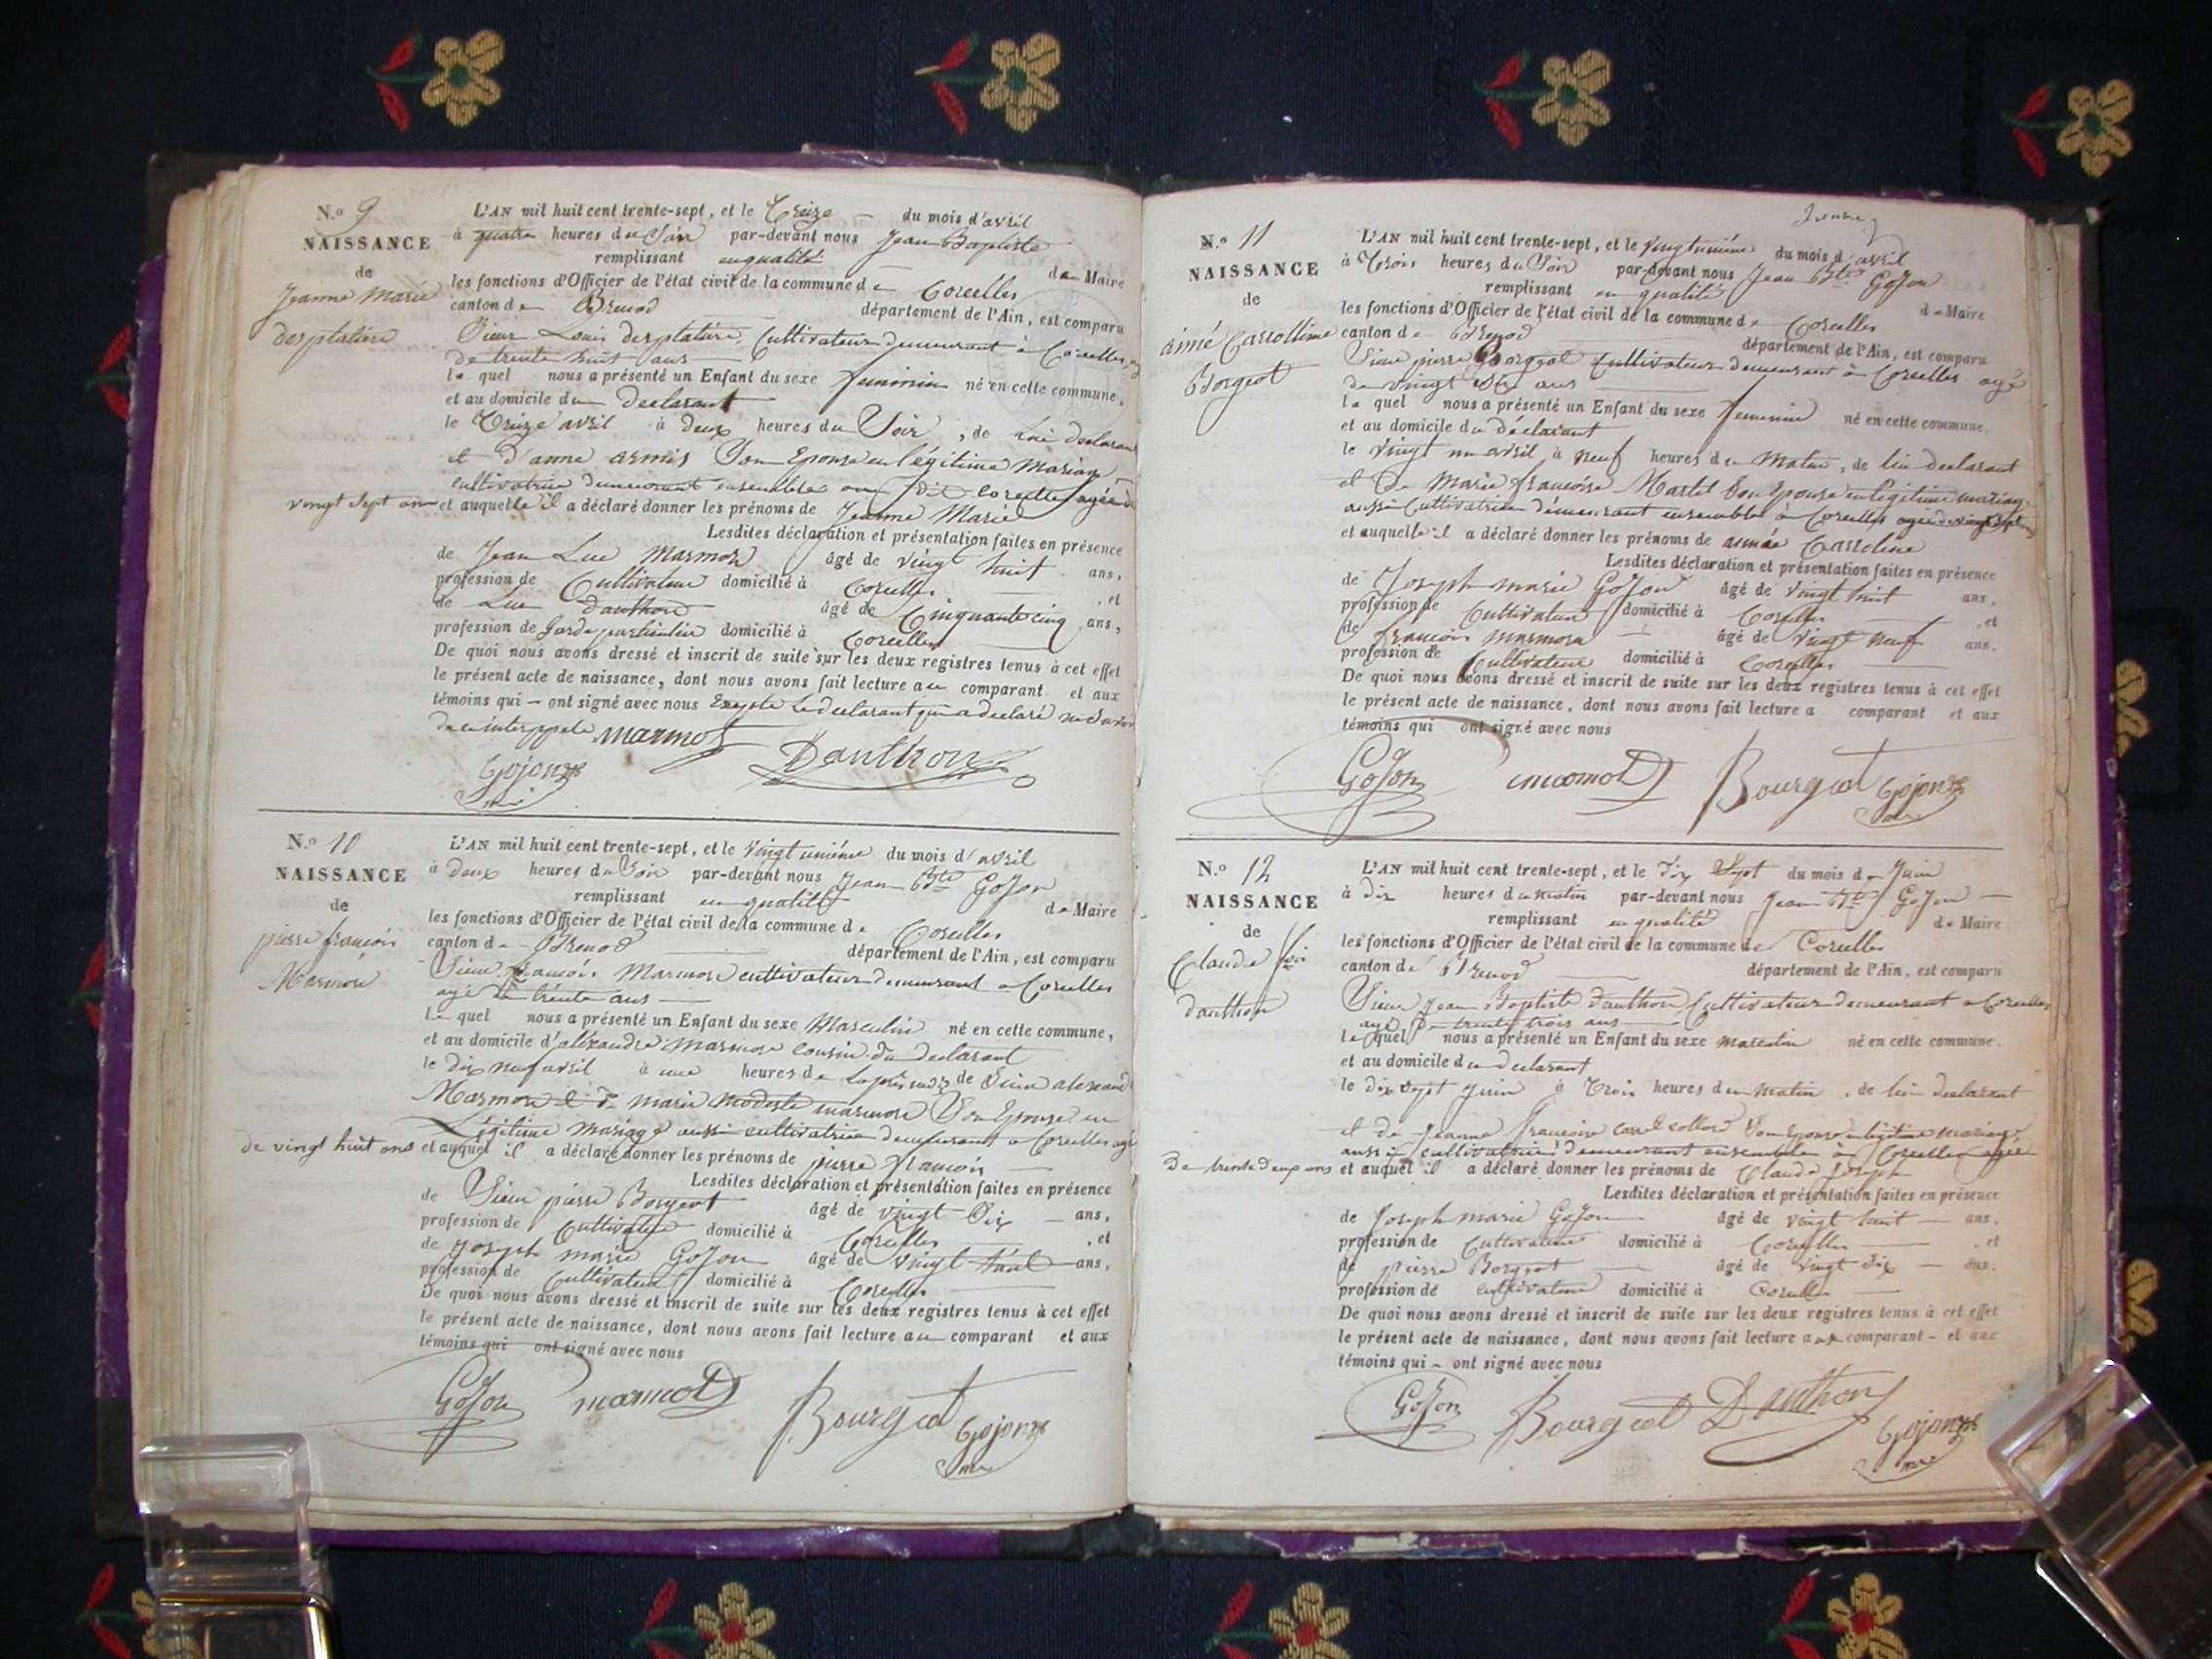 N.o 9
NAISSANCE
de
Jeanne Marie
desplatine
L'AN mil huit cent trente-sept, et le Treize du mois d'avril
à quatre heures du Soir par-devant nous Jean Baptiste
remplissant en qualité de Maire
les fonctions d'Officier de l'état civil de la commune de Corcelles
canton de Brenod département de l'Ain, est comparu
Sieur Louis desplatine, Cultivateur demeurant à Corcelles
de trente huit ans
le quel nous a présenté un Enfant du sexe feminin né en cette commune,
et au domicile du declarant
le Treize avril à deux heures du Soir, de Lui declarant
et d'anne armis Son Epouse en légitime Mariage
cultivatrice demeurant ensembles au dit Corcelles agée de
vingt Sept ans et auquelle il a déclaré donner les prénoms de Jeanne Marie
Lesdites déclaration et présentation faites en présence
de Jean Luc Marmon âgé de vingt huit ans,
profession de Cultivateur domicilié à Corcelles, et
de Luc Dauthon âgé de Cinquante cinq ans,
profession de Garde particulier domicilié à Corcelles
De quoi nous avons dressé et inscrit de suite sur les deux registres tenus à cet effet
le présent acte de naissance, dont nous avons fait lecture au comparant et aux
témoins qui ont signé avec nous Excepté Le declarant qui a declaré ne Savoir
de ce interppele
Dauthon
Gojon
N.o 10
NAISSANCE
de
pierre françois
Marmon
L'AN mil huit cent trente-sept, et le vingt unième du mois d'avril
à deux heures du Soir par-devant nous Jean Bte GoJon
remplissant en qualité de Maire
les fonctions d'Officier de l'état civil de la commune de Corcelles
canton de Brenod département de l'Ain, est comparu
Sieur francois Marmon cultivateur demeurant a Corcelles
agé de trente ans
le quel nous a présenté un Enfant du sexe Masculin né en cette commune,
et au domicile d'alexandre marmon cousin du declarant
le dix neuf avril à une heures de Laprès midi de Sieur alexandre
Marmon et de marie modeste marmon Son Epouse en
Légitime Mariage aussi cultivatrice demeurant a Corcelles agé
de vingt huit ans et auquel il a déclaré donner les prénoms de pierre francois
Lesdites déclaration et présentation faites en présence
de Sieur pierre Borgeot âgé de vingt Six ans,
profession de Cultivateur domicilié à Corcelles, et
de Joseph marie GoJon âgé de vingt huit ans,
profession de Cultivateur domicilié à Corcelles
De quoi nous avons dressé et inscrit de suite sur les deux registres tenus à cet effet
le présent acte de naissance, dont nous avons fait lecture au comparant et aux
témoins qui ont signé avec nous
GoJon Bourgeot Gojon
N.o 11
NAISSANCE
de
aimé Carrolline
Borgeot
L'AN mil huit cent trente-sept, et le vingt unième du mois d'avril
à Trois heures du Soir par-devant nous Jean Bte GoJon
remplissant en qualité de Maire
les fonctions d'Officier de l'état civil de la commune de Corcelles
canton de Brenod département de l'Ain, est comparu
Sieur pierre Borgeot Cultivateur demeurant à Corcelles agé
de vingt Six ans
le quel nous a présenté un Enfant du sexe feminin né en cette commune,
et au domicile du déclarant
le vingt un avril à Neuf heures du Matin, de lui declarant
et de Marie francoise Martel Son Epouse en Legitime mariage
aussi Cultivatrice démeurant ensembles à Corcelles agée de vingt Sept ans
et auquelle il a déclaré donner les prénoms de aimée Carroline
Lesdites déclaration et présentation faites en présence
de Joseph marie GoJon âgé de vingt huit ans,
profession de Cultivateur domicilié à Corcelles, et
de francois marmon âgé de vingt neuf ans,
profession de Cultivateur domicilié à Corcelles
De quoi nous avons dressé et inscrit de suite sur les deux registres tenus à cet effet
le présent acte de naissance, dont nous avons fait lecture a comparant et aux
témoins qui ont signé avec nous
GoJon Bourgeot Gojon
N.o 12
NAISSANCE
de
Claude
dauthon
L'AN mil huit cent trente-sept, et le dix Sept du mois de Juin
à dix heures du matin par-devant nous Jean Bte GoJon
remplissant en qualité de Maire
les fonctions d'Officier de l'état civil de la commune de Corcelles
canton de Brenod département de l'Ain, est comparu
Sieur Jean Baptiste dauthon Cultivateur demeurant a Corcelles
agé de trente trois ans
le quel nous a présenté un Enfant du sexe masculin né en cette commune,
et au domicile du declarant
le dix Sept Juin à Trois heures du matin, de lui declarant
et de Jeanne francoise Son Epouse en légitime mariage
aussi cultivatrice demeurant ensembles à Corcelles agée
De trente deux ans et auquel il a déclaré donner les prénoms de Claude Joseph
Lesdites déclaration et présentation faites en présence
de Joseph marie GoJon âgé de vingt huit ans,
profession de Cultivateur domicilié à Corcelles, et
de pierre Borgeot âgé de vingt Six ans,
profession de cultivateur domicilié à Corcelles
De quoi nous avons dressé et inscrit de suite sur les deux registres tenus à cet effet
le présent acte de naissance, dont nous avons fait lecture au comparant et aux
témoins qui ont signé avec nous
GoJon Bourgeot Dauthon Gojon